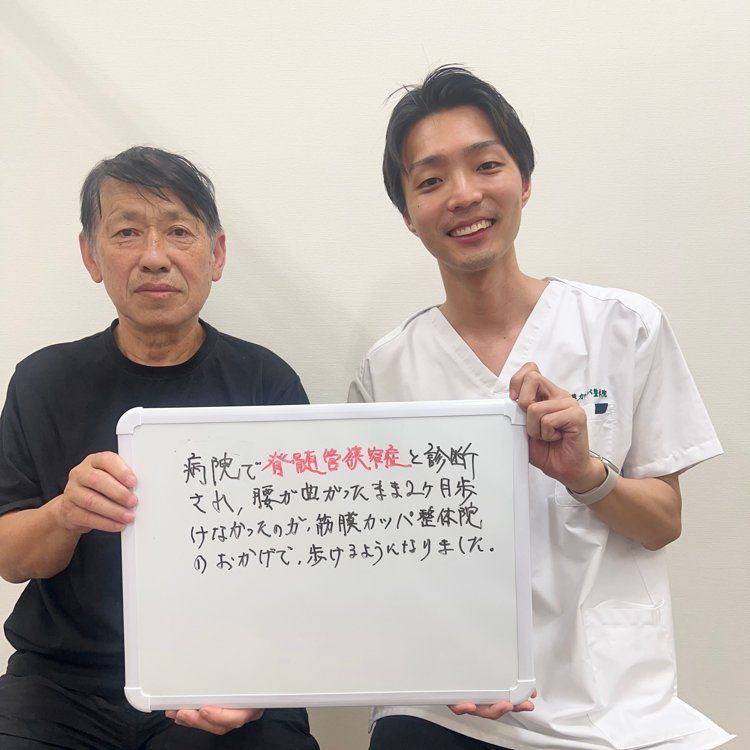 病院で脊髄管狭窄症と診断
され、腰が曲がったまま2ヶ月歩
けなかったのが、筋膜カッパ整体院
のおかげで、歩けるようになりました。
カッパ整体院